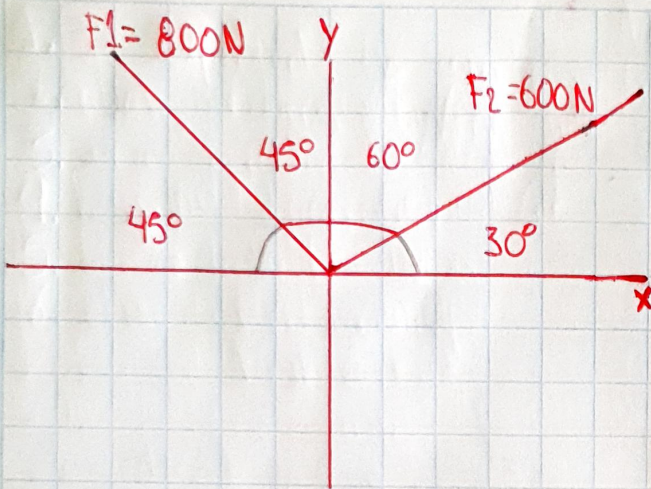 F1= 800N
Y
F2=600N
45°
60°
45°
30°
X